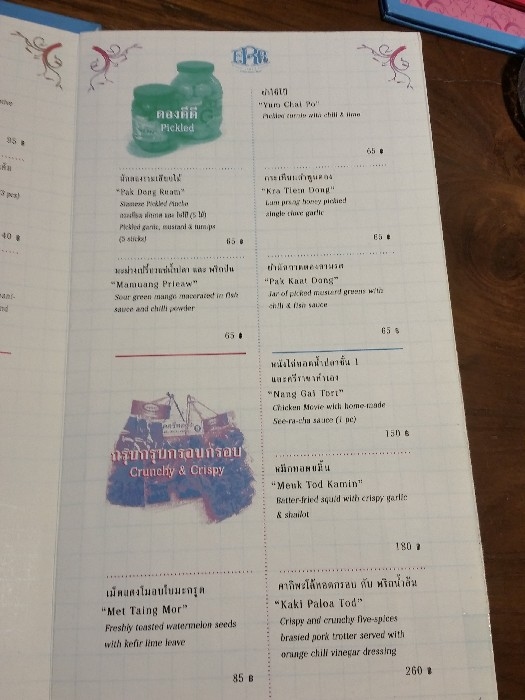 ERR
ดองดีดี
Pickled
ยำไช้โป๊
"Yum Chai Po"
Pickled turnip with chili & lime
65 ฿
ผักดองรวมเสียบไม้
"Pak Dong Ruam"
Siamese Pickled Pincho
กระเทียม ผักกาด และ ไช้โป๊ (5 ไม้)
Pickled garlic, mustard & turnips
(5 sticks)
65 ฿
"Kra Tiem Dong"
Lam prang honey pickled
single clove garlic
65 ฿
"Mamuang Prieaw"
Sour green mango macerated in fish
sauce and chilli powder
65 ฿
ยำผักกาดดองสามรส
"Pak Kaat Dong"
Jar of picked mustard greens with
chili & fish sauce
65 ฿
กรุบกรุบกรอบกรอบ
Crunchy & Crispy
หนังไก่ทอดน้ำปลาชั้น 1
และศรีราชาทำเอง
"Nang Gai Tort"
Chicken Movie with home-made
See-ra-cha sauce (1 pc)
150 ฿
หมึกทอดขมิ้น
"Meuk Tod Kamin"
Batter-fried squid with crispy garlic
& shallot
180 ฿
เม็ดแตงโมอบใบมะกรูด
"Met Taing Mor"
Freshly toasted watermelon seeds
with kefir lime leave
85 ฿
คากิพะโล้ทอดกรอบ กับ พริกน้ำส้ม
"Kaki Paloa Tod"
Crispy and crunchy five-spices
brasied pork trotter served with
orange chili vinegar dressing
260 ฿